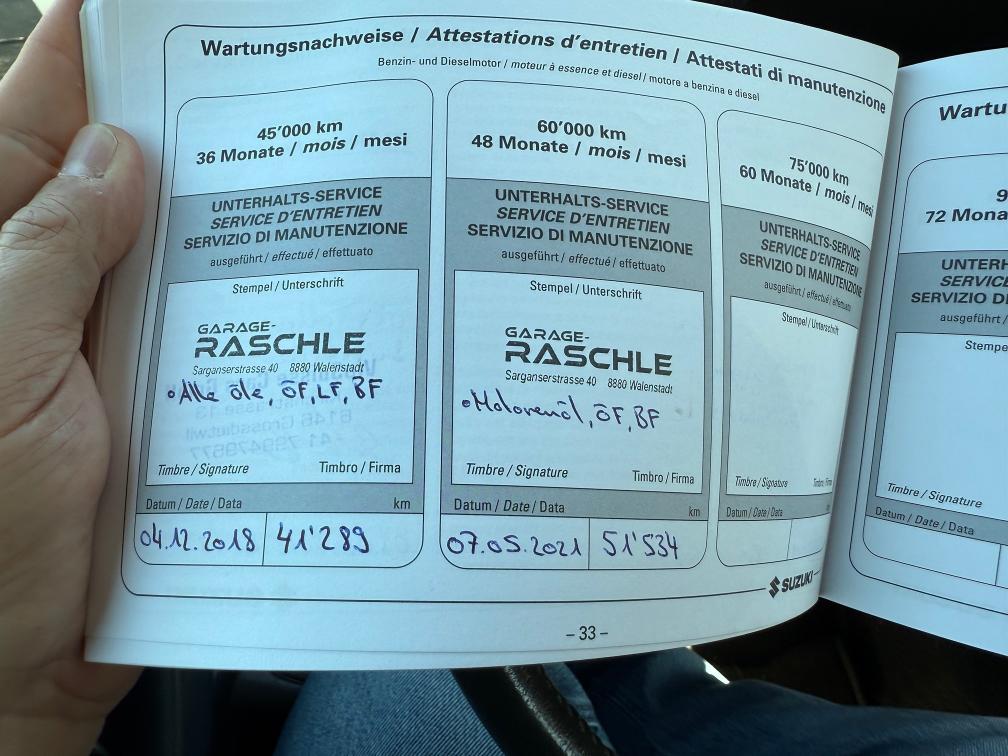 Wartungsnachweise / Attestations d'entretien / Attestati di manutenzione
Benzin- und Dieselmotor / moteur à essence et diesel / motore a benzina e diesel
45'000 km
36 Monate / mois / mesi
UNTERHALTS-SERVICE
SERVICE D'ENTRETIEN
SERVIZIO DI MANUTENZIONE
ausgeführt / effectué / effettuato
Stempel / Unterschrift
GARAGE-
RASCHLE
Sarganserstrasse 40 8880 Walenstadt
•Alle Öle, ÖF, LF, BF
Timbre / Signature Timbro / Firma
Datum / Date / Data km
04.12.2018 41'289
60'000 km
48 Monate / mois / mesi
UNTERHALTS-SERVICE
SERVICE D'ENTRETIEN
SERVIZIO DI MANUTENZIONE
ausgeführt / effectué / effettuato
Stempel / Unterschrift
GARAGE-
RASCHLE
Sarganserstrasse 40 8880 Walenstadt
•Motorenöl, ÖF, BF
Timbre / Signature Timbro / Firma
Datum / Date / Data km
07.05.2021 51'534
75'000 km
60 Monate / mois / mesi
UNTERHALTS-SERVICE
SERVICE D'ENTRETIEN
SERVIZIO DI MANUTENZIONE
ausgeführt / effectué / effettuato
Stempel / Unterschrift
Timbre / Signature
Datum / Date / Data
SUZUKI
– 33 –
72
Timbre / Signature
Datum / Date / Data